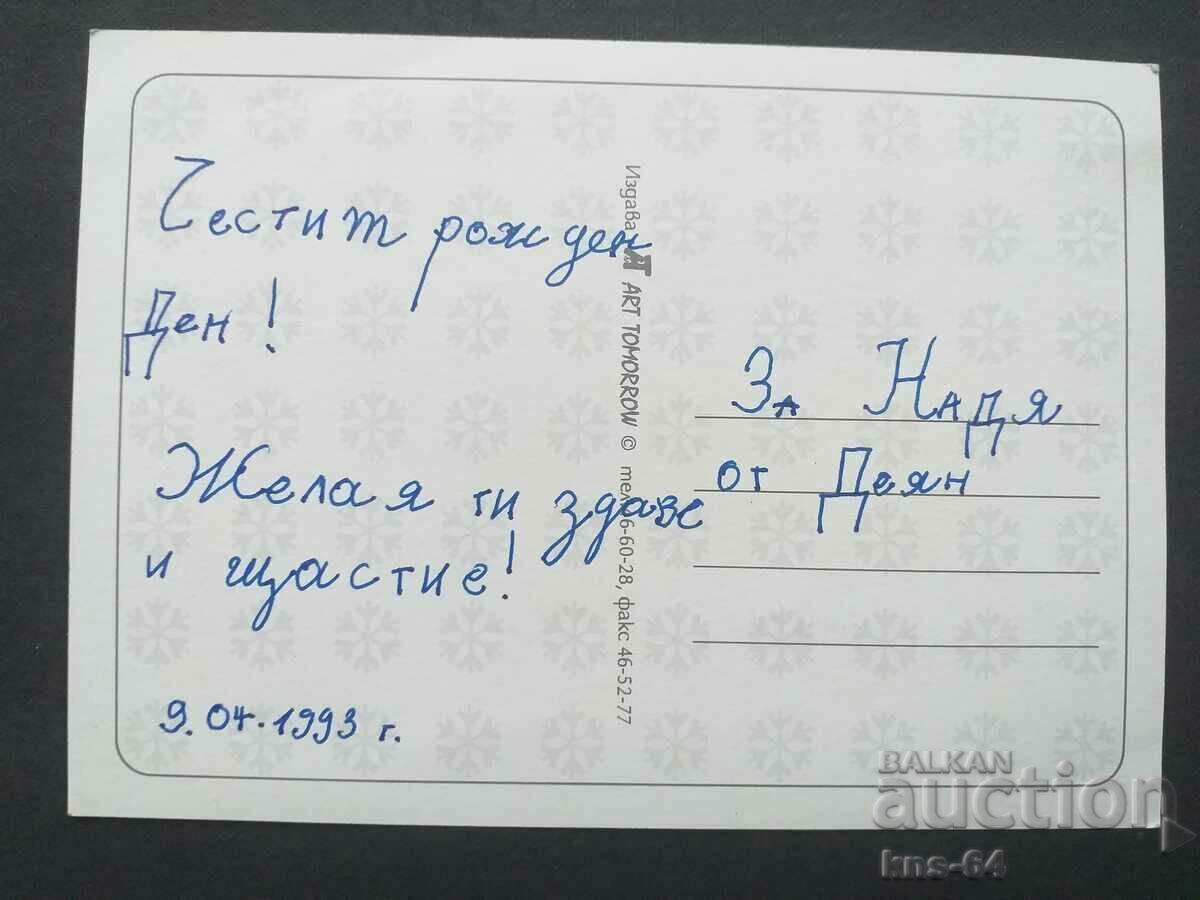 Честит рожден
Ден!
Желая ти здраве
и щастие!
9.04.1993 г.
Издава: ART TOMORROW © тел. 6-60-28, факс 46-52-77
За Надя
от Деян
BALKAN
auction
kns-64